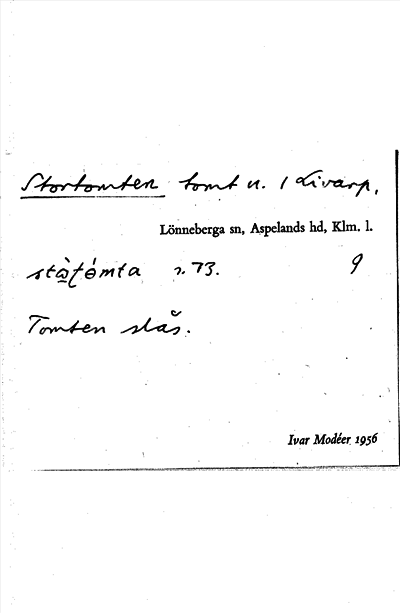 Stortomten tomt u. 1 Livarp.
Lönneberga sn, Aspelands hd, Klm. l.
s. 73. 9
Tomten slås.
Ivar Modéer 1956